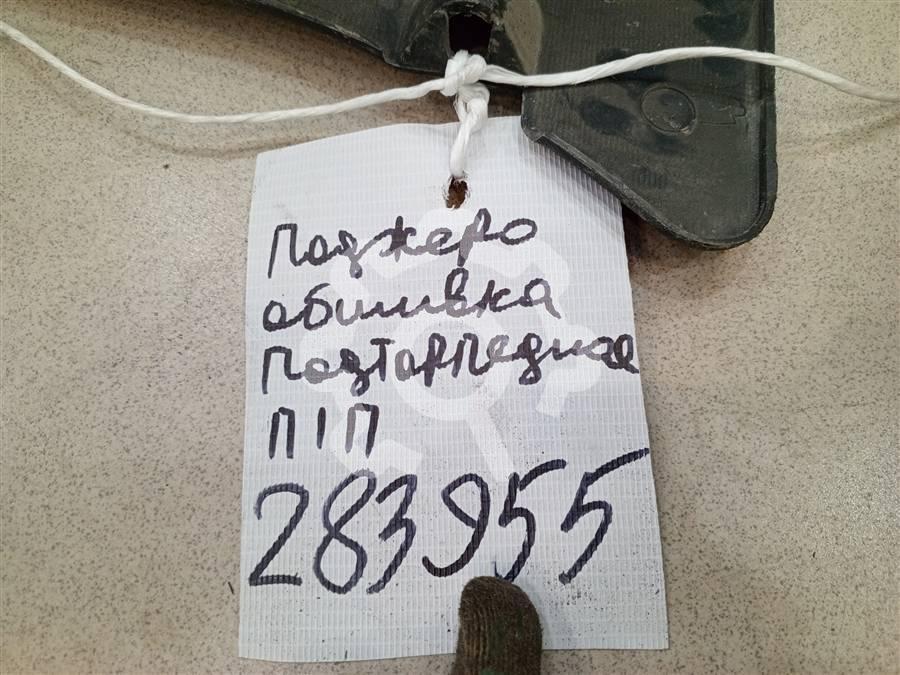 Поджеро
обшивка
Подторпедная
П/П
283955